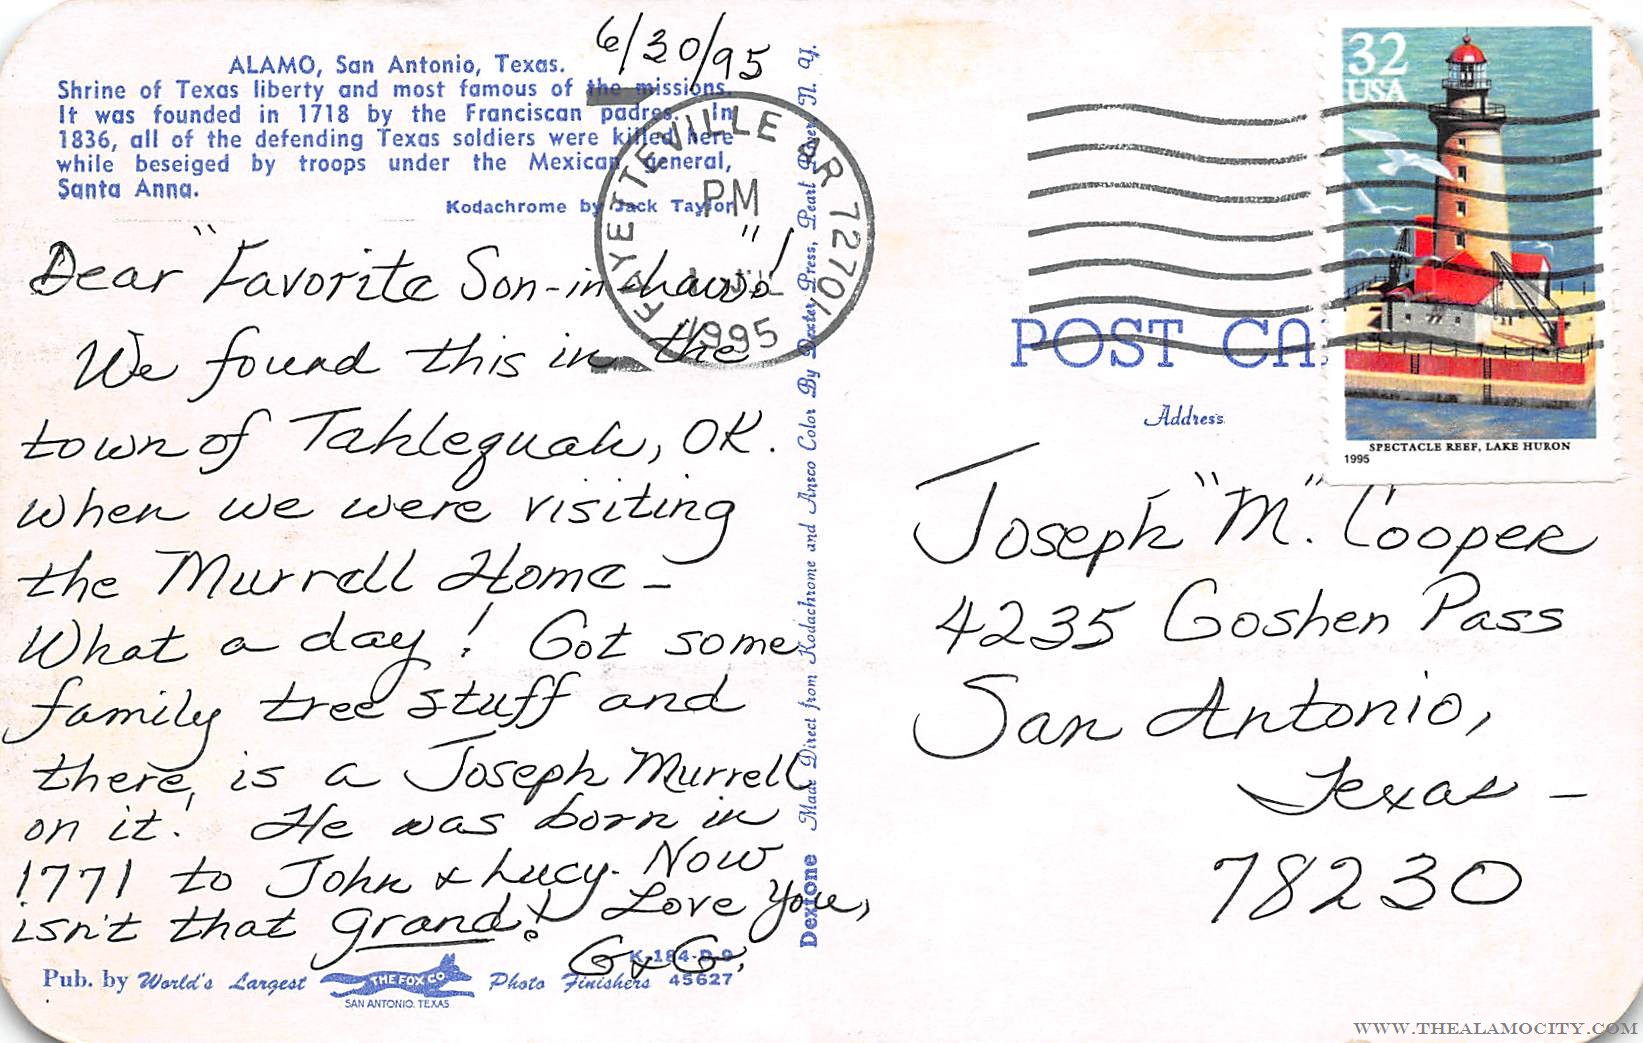 6/30/95
ALAMO, San Antonio, Texas.
Shrine of Texas liberty and most famous of the missions.
It was founded in 1718 by the Franciscan padres. In
1836, all of the defending Texas soldiers were killed here
while beseiged by troops under the Mexican general,
Santa Anna.
Kodachrome by Jack Taylor
FAYETTEVILLE AR 72701
PM
1995
Dear "Favorite Son-in-Law"!
We found this in the
town of Tahlequah, OK.
when we were visiting
the Murrell Home –
What a day! Got some
family tree stuff and
there, is a Joseph Murrell
on it! He was born in
1771 to John & Lucy. Now
isn't that grand! Love You,
G & G.
K-184-D-9
45627
Pub. by World's Largest
THE FOX CO
SAN ANTONIO, TEXAS
Photo Finishers
Dextone Made Direct from Kodachrome and Ansco Color By Dexter Press, Pearl River, N. Y.
32
USA
SPECTACLE REEF, LAKE HURON
1995
POST CA
Address
Joseph "M". Cooper
4235 Goshen Pass
San Antonio,
Texas –
78230
WWW.THEALAMOCITY.COM